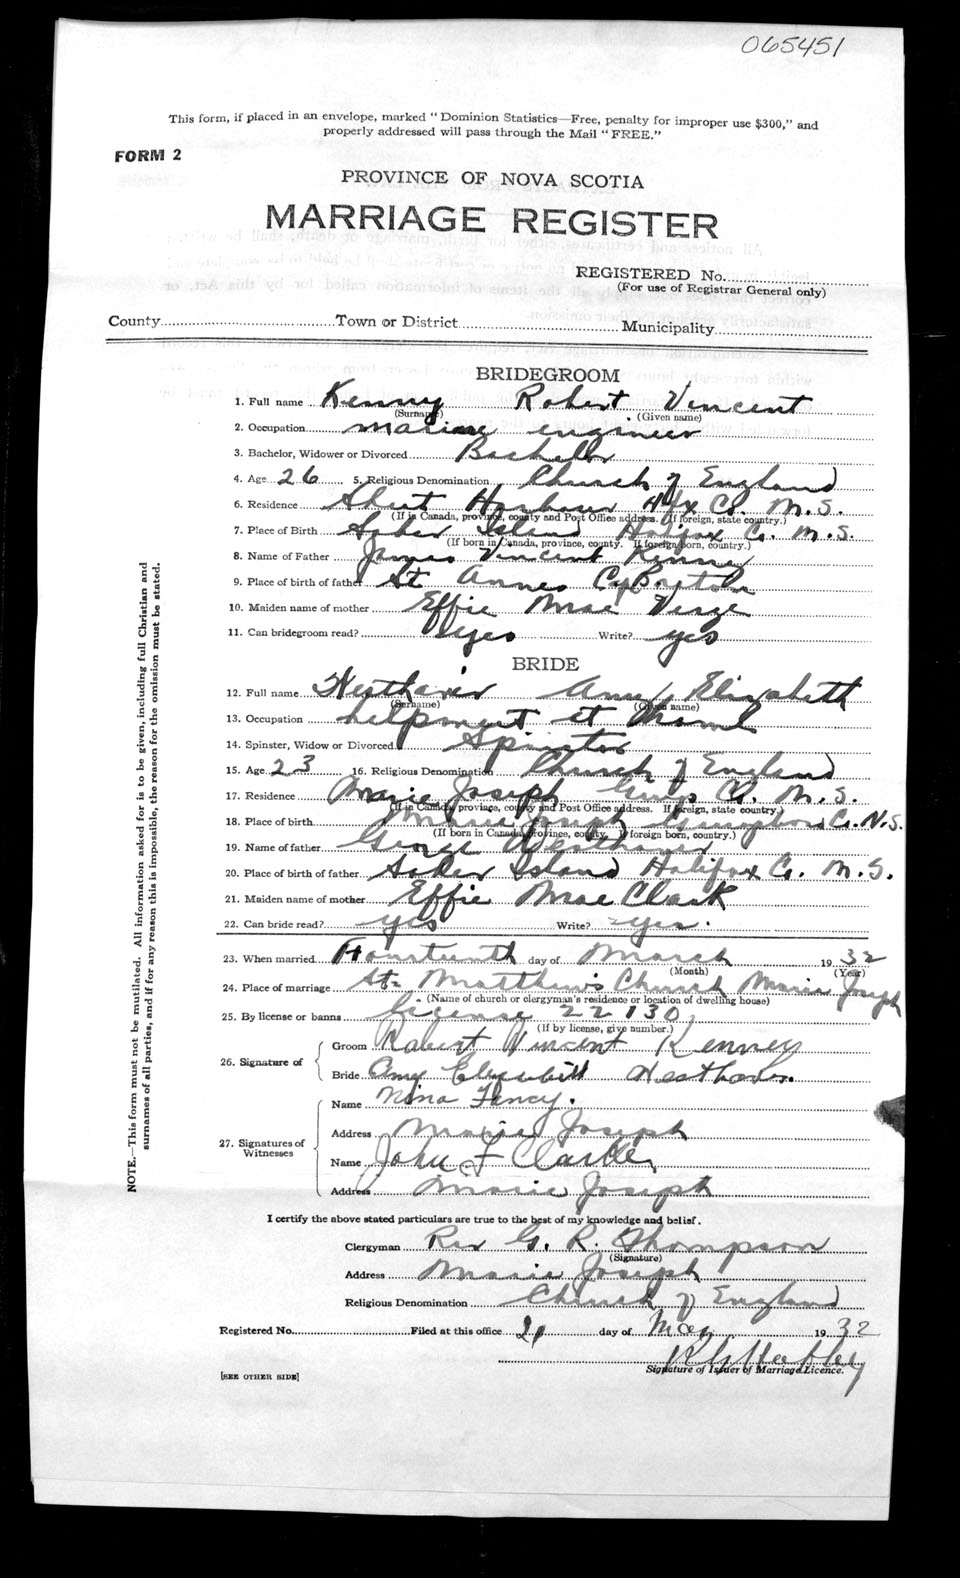 065451
This form, if placed in an envelope, marked "Dominion Statistics—Free, penalty for improper use $300," and
properly addressed will pass through the Mail "FREE."
FORM 2
PROVINCE OF NOVA SCOTIA
MARRIAGE REGISTER
REGISTERED No.
(For use of Registrar General only)
County Town or District Municipality
BRIDEGROOM
1. Full name Kenny Robert Vincent
(Surname) (Given name)
2. Occupation marine engineer
3. Bachelor, Widower or Divorced Bachelor
4. Age 26 5. Religious Denomination Church of England
6. Residence Sheet Harbour Hfx Co. N.S.
(If in Canada, province, county and Post Office address. If foreign, state country.)
7. Place of Birth Sober Island Halifax Co. N.S.
(If born in Canada, province, county. If foreign born, country.)
8. Name of Father James Vincent Kenny
9. Place of birth of father St Annes Cp Breton
10. Maiden name of mother Effie Mae Verge
11. Can bridegroom read? yes Write? yes
BRIDE
12. Full name Westhaver Amy Elizabeth
(Surname) (Given name)
13. Occupation helpment at Home
14. Spinster, Widow or Divorced Spinster
15. Age 23 16. Religious Denomination Church of England
17. Residence Marie Joseph Guys Co. N.S.
(If in Canada, province, county and Post Office address. If foreign, state country.)
18. Place of birth Marie Joseph Guysboro Co. N.S.
(If born in Canada, province, county. If foreign born, country.)
19. Name of father George Westhaver
20. Place of birth of father Sober Island Halifax Co. N.S.
21. Maiden name of mother Effie Mae Clark
22. Can bride read? yes Write? yes
23. When married Fourteenth day of March 1932
(Month) (Year)
24. Place of marriage St. Matthew's Church Marie Joseph
(Name of church or clergyman's residence or location of dwelling house)
25. By license or banns license 22130
(If by license, give number.)
26. Signature of
Groom Robert Vincent Kenney
Bride Amy Elizabeth Westhaver.
27. Signatures of Witnesses
Name Nina Fancy.
Address Marie Joseph
Name John F Clark
Address Marie Joseph
I certify the above stated particulars are true to the best of my knowledge and belief.
Clergyman Rev G. R. Thompson
(Signature)
Address Marie Joseph
Religious Denomination Church of England
Registered No. Filed at this office 21 day of May 1932
Signature of Issuer of Marriage Licence.
[SEE OTHER SIDE]
NOTE.—This form must not be mutilated. All information asked for is to be given, including full Christian and
surnames of all parties, and if for any reason this is impossible, the reason for the omission must be stated.